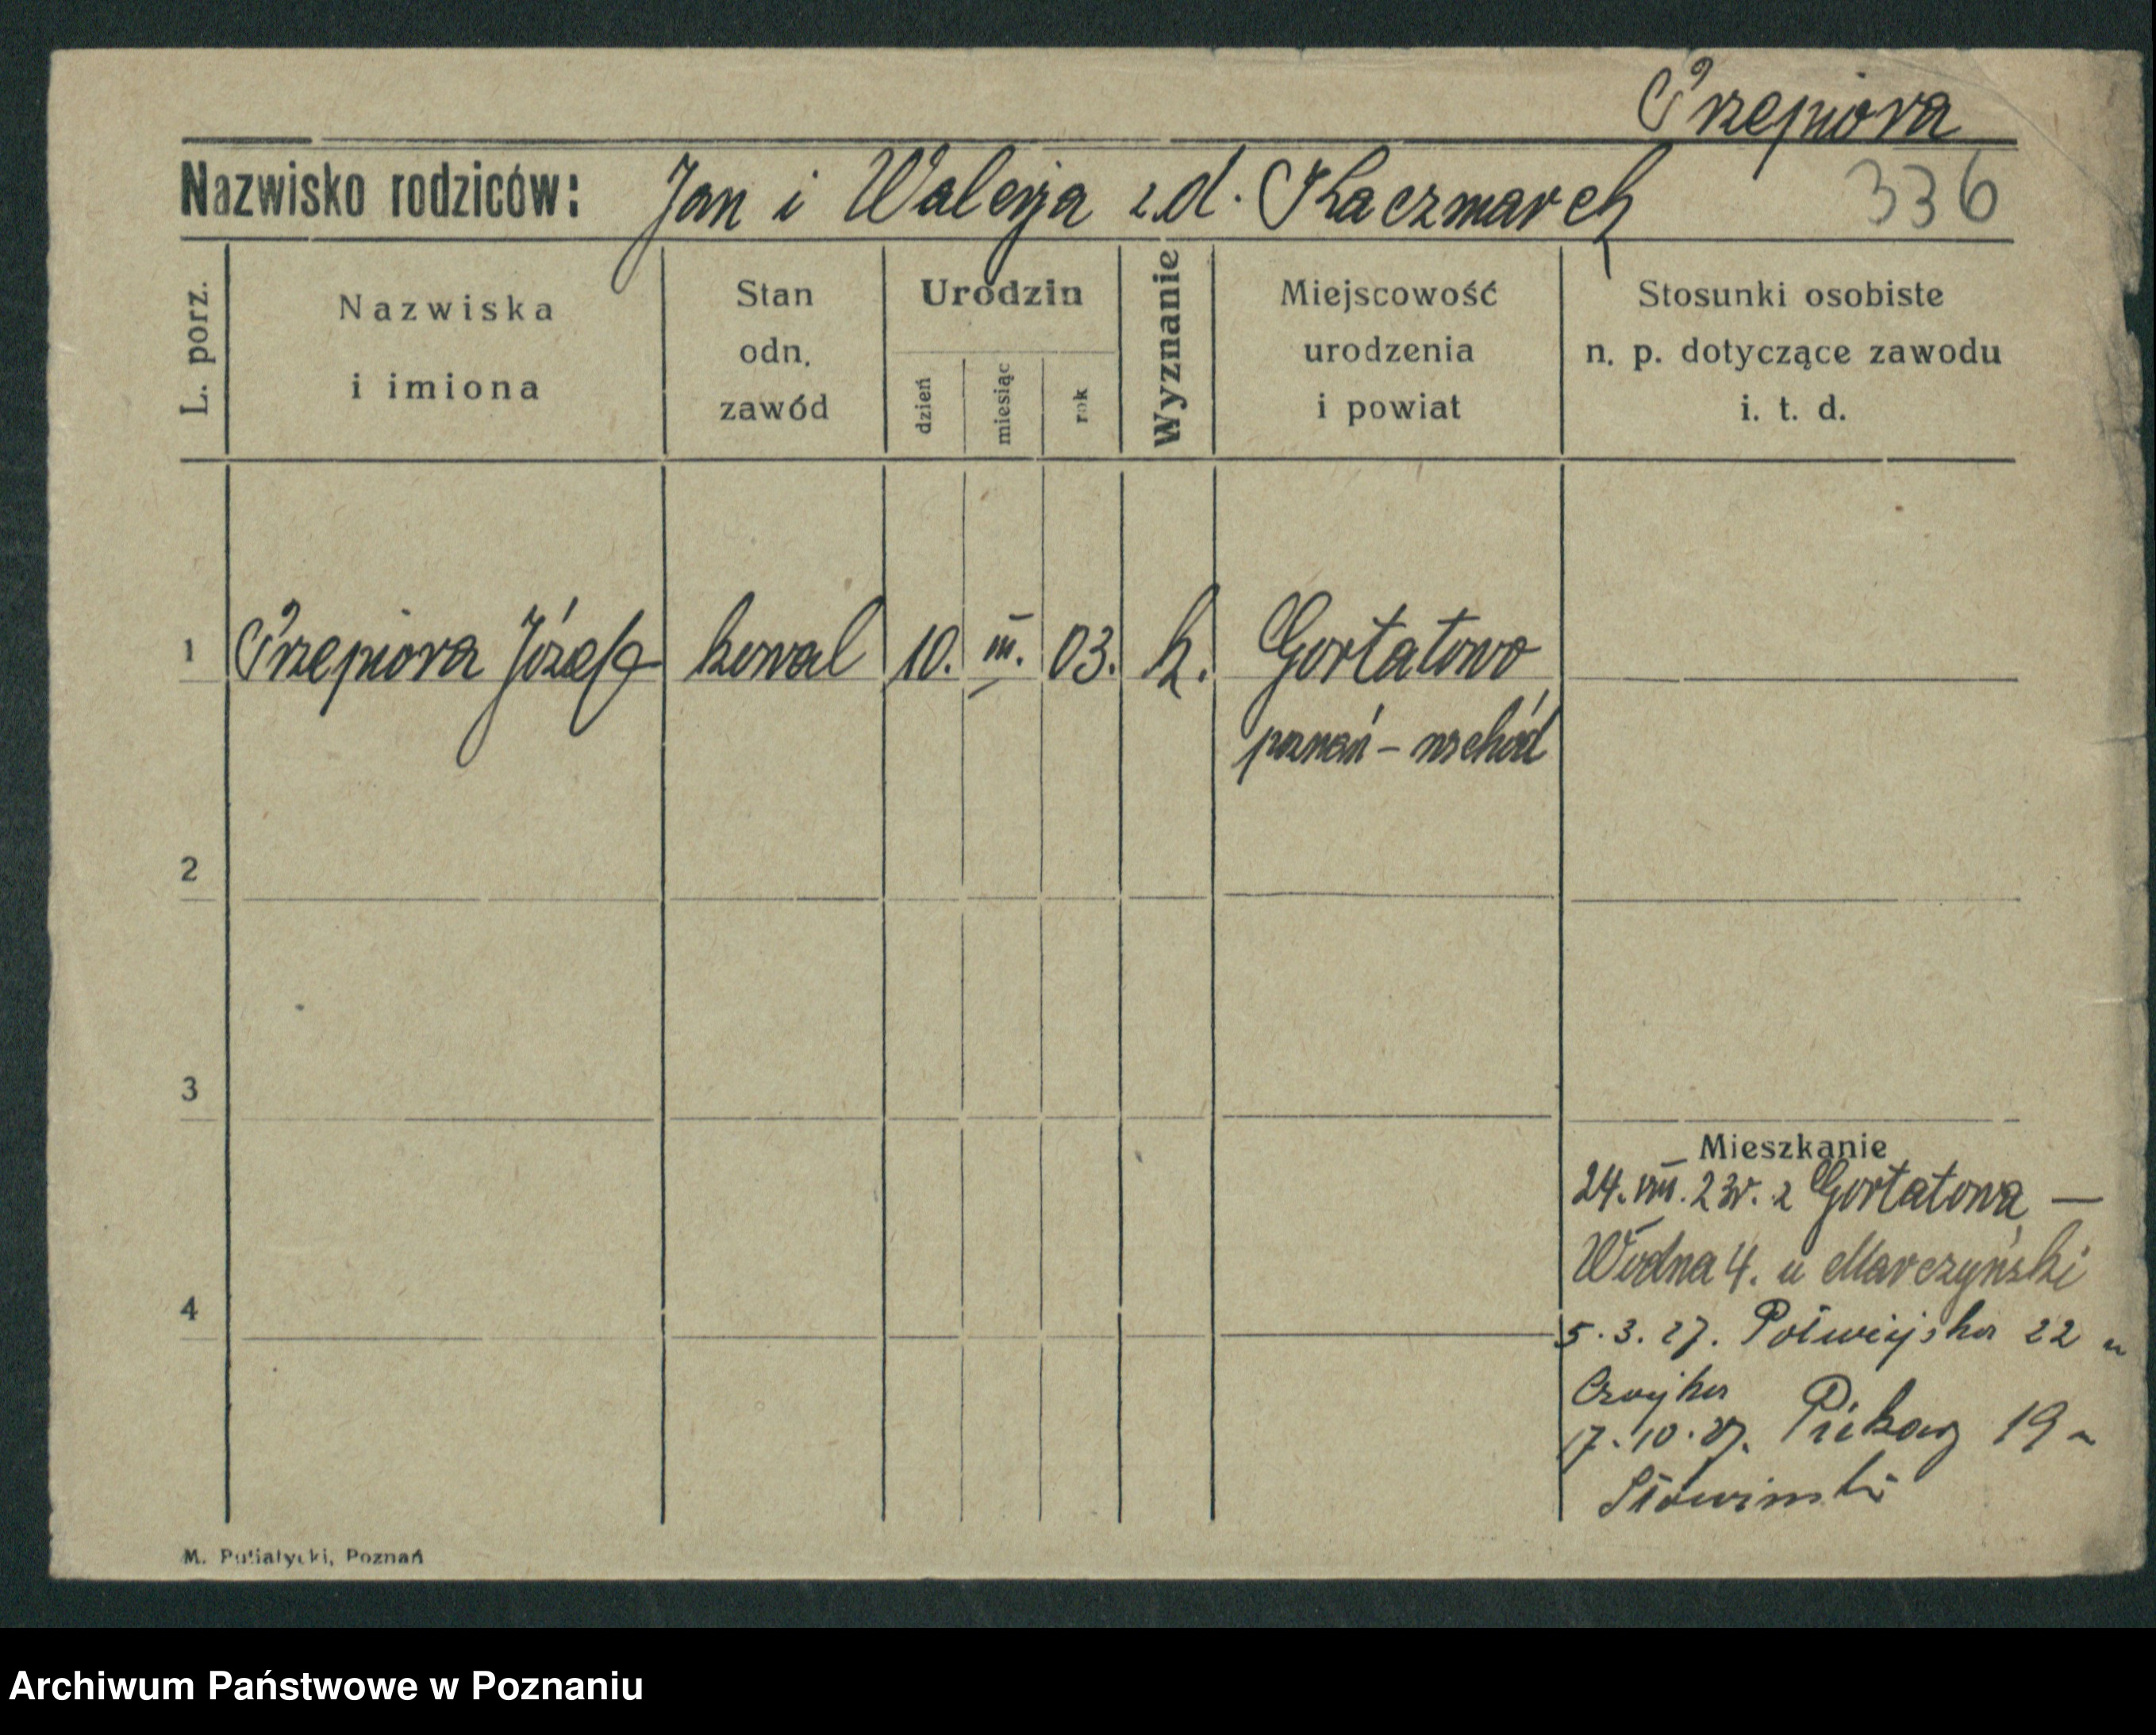 Przepiora
Nazwisko rodziców: Jan i Walerja z.d. Kaczmarek 336
L. porz.
Nazwiska
i imiona
Stan
odn.
zawód
Urodzin
dzień
miesiąc
rok
Wyznanie
Miejscowość
urodzenia
i powiat
Stosunki osobiste
n. p. dotyczące zawodu
i. t. d.
1 Przepiora Józef kowal 10. III. 03. k. Gortatowo
poznań – wschód
2
3
Mieszkanie
24. VIII. 23r. z Gortatowa –
Wodna 4. u Marczyński
4
5. 3. 27. Półwiejska 22 u
17. 10. 27. Piekary 19 u
M. Putiatycki, Poznań
Archiwum Państwowe w Poznaniu